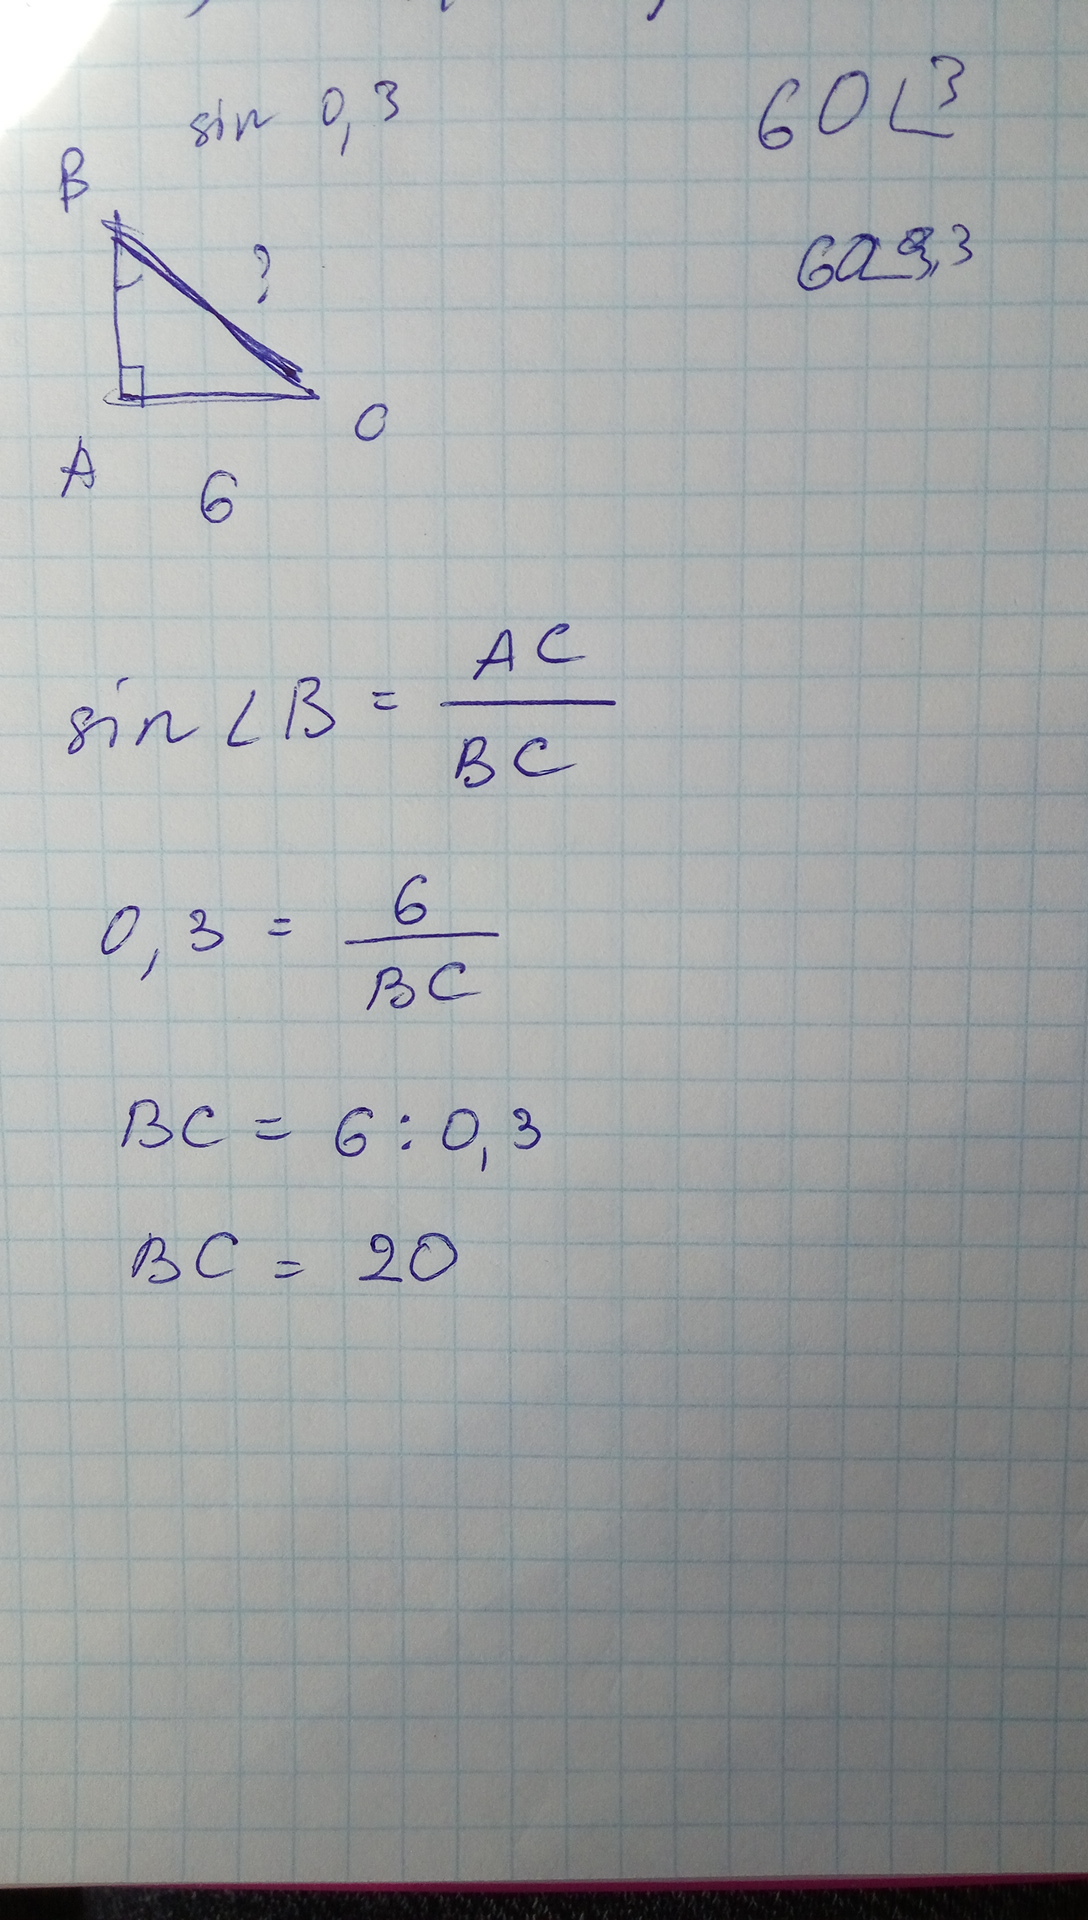 sin 0,3
60 ∟3
B
?
A
C
6
sin ∠B = AC / BC
0,3 = 6 / BC
BC = 6 : 0,3
BC = 20